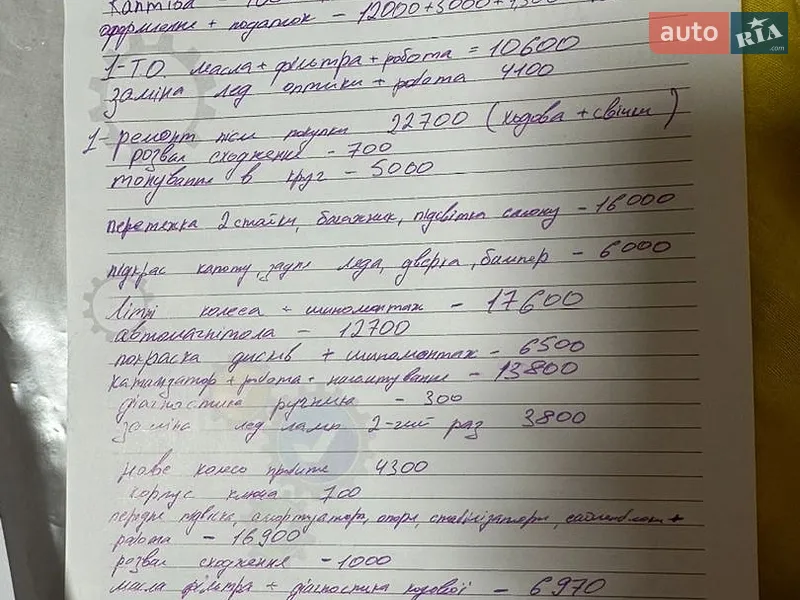 Каптіва - 100
оформлення + податок - 12000+5000+
auto RIA .com
1-ТО масла + фільтра + робота = 10600
заміна лед оптики + робота 4100
1 ремонт після покупки 22700 (ходова + свічки)
розвал сходження - 700
тонування в круг - 5000
перетяжка 2 стойки, багажник, підсвітка салону - 16000
підкрас капоту, задні леда, дверка, бампер - 6000
Літні колеса + шиномонтаж - 17600
автомагнітола - 12700
покраска дисків + шиномонтаж - 6500
катализатор + робота + налаштування - 13800
діагностика ручника - 300
заміна лед ламп 2-гий раз 3800
нове колесо пробите 4300
корпус ключа 700
передня підвіска, амортизатора, опори, стабілізатори, сайлентблоки +
работа - 16900
розвал сходження - 1000
масла фільтра + діагностика ходової - 6970